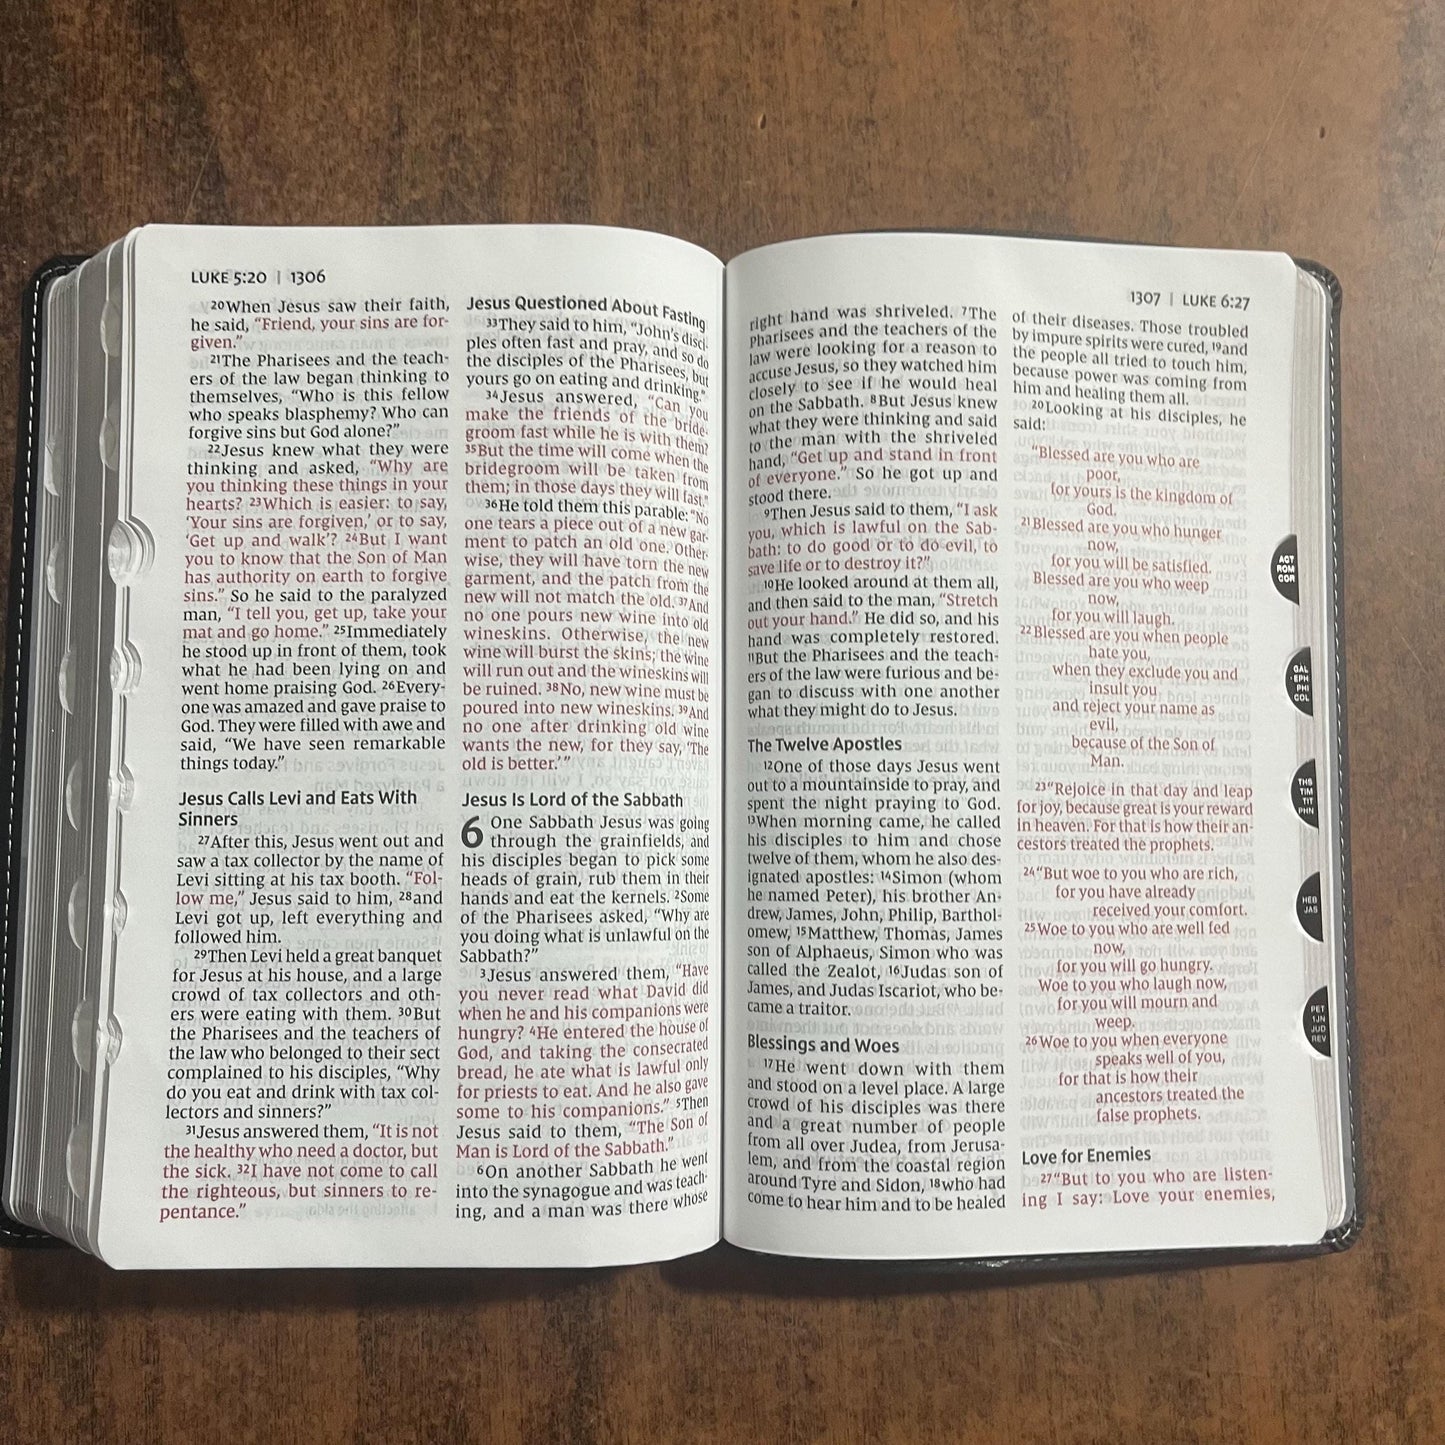 LUKE 5:20 | 1306
²⁰When Jesus saw their faith,
he said, “Friend, your sins are for-
given.”
²¹The Pharisees and the teach-
ers of the law began thinking to
themselves, “Who is this fellow
who speaks blasphemy? Who can
forgive sins but God alone?”
²²Jesus knew what they were
thinking and asked, “Why are
you thinking these things in your
hearts? ²³Which is easier: to say,
‘Your sins are forgiven,’ or to say,
‘Get up and walk’? ²⁴But I want
you to know that the Son of Man
has authority on earth to forgive
sins.” So he said to the paralyzed
man, “I tell you, get up, take your
mat and go home.” ²⁵Immediately
he stood up in front of them, took
what he had been lying on and
went home praising God. ²⁶Every-
one was amazed and gave praise to
God. They were filled with awe and
said, “We have seen remarkable
things today.”
Jesus Calls Levi and Eats With
Sinners
²⁷After this, Jesus went out and
saw a tax collector by the name of
Levi sitting at his tax booth. “Fol-
low me,” Jesus said to him, ²⁸and
Levi got up, left everything and
followed him.
²⁹Then Levi held a great banquet
for Jesus at his house, and a large
crowd of tax collectors and oth-
ers were eating with them. ³⁰But
the Pharisees and the teachers of
the law who belonged to their sect
complained to his disciples, “Why
do you eat and drink with tax col-
lectors and sinners?”
³¹Jesus answered them, “It is not
the healthy who need a doctor, but
the sick. ³²I have not come to call
the righteous, but sinners to re-
pentance.”
Jesus Questioned About Fasting
³³They said to him, “John’s disci-
ples often fast and pray, and so do
the disciples of the Pharisees, but
yours go on eating and drinking.”
³⁴Jesus answered, “Can you
make the friends of the bride-
groom fast while he is with them?
³⁵But the time will come when the
bridegroom will be taken from
them; in those days they will fast.”
³⁶He told them this parable: “No
one tears a piece out of a new gar-
ment to patch an old one. Other-
wise, they will have torn the new
garment, and the patch from the
new will not match the old. ³⁷And
no one pours new wine into old
wineskins. Otherwise, the new
wine will burst the skins; the wine
will run out and the wineskins will
be ruined. ³⁸No, new wine must be
poured into new wineskins. ³⁹And
no one after drinking old wine
wants the new, for they say, ‘The
old is better.’ ”
Jesus Is Lord of the Sabbath
6 One Sabbath Jesus was going
through the grainfields, and
his disciples began to pick some
heads of grain, rub them in their
hands and eat the kernels. ²Some
of the Pharisees asked, “Why are
you doing what is unlawful on the
Sabbath?”
³Jesus answered them, “Have
you never read what David did
when he and his companions were
hungry? ⁴He entered the house of
God, and taking the consecrated
bread, he ate what is lawful only
for priests to eat. And he also gave
some to his companions.” ⁵Then
Jesus said to them, “The Son of
Man is Lord of the Sabbath.”
⁶On another Sabbath he went
into the synagogue and was teach-
ing, and a man was there whose
1307 | LUKE 6:27
right hand was shriveled. ⁷The
Pharisees and the teachers of the
law were looking for a reason to
accuse Jesus, so they watched him
closely to see if he would heal
on the Sabbath. ⁸But Jesus knew
what they were thinking and said
to the man with the shriveled
hand, “Get up and stand in front
of everyone.” So he got up and
stood there.
⁹Then Jesus said to them, “I ask
you, which is lawful on the Sab-
bath: to do good or to do evil, to
save life or to destroy it?”
¹⁰He looked around at them all,
and then said to the man, “Stretch
out your hand.” He did so, and his
hand was completely restored.
¹¹But the Pharisees and the teach-
ers of the law were furious and be-
gan to discuss with one another
what they might do to Jesus.
The Twelve Apostles
¹²One of those days Jesus went
out to a mountainside to pray, and
spent the night praying to God.
¹³When morning came, he called
his disciples to him and chose
twelve of them, whom he also des-
ignated apostles: ¹⁴Simon (whom
he named Peter), his brother An-
drew, James, John, Philip, Barthol-
omew, ¹⁵Matthew, Thomas, James
son of Alphaeus, Simon who was
called the Zealot, ¹⁶Judas son of
James, and Judas Iscariot, who be-
came a traitor.
Blessings and Woes
¹⁷He went down with them
and stood on a level place. A large
crowd of his disciples was there
and a great number of people
from all over Judea, from Jerusa-
lem, and from the coastal region
around Tyre and Sidon, ¹⁸who had
come to hear him and to be healed
of their diseases. Those troubled
by impure spirits were cured, ¹⁹and
the people all tried to touch him,
because power was coming from
him and healing them all.
²⁰Looking at his disciples, he
said:
“Blessed are you who are
poor,
for yours is the kingdom of
God.
²¹Blessed are you who hunger
now,
for you will be satisfied.
Blessed are you who weep
now,
for you will laugh.
²²Blessed are you when people
hate you,
when they exclude you and
insult you
and reject your name as
evil,
because of the Son of
Man.
²³“Rejoice in that day and leap
for joy, because great is your reward
in heaven. For that is how their an-
cestors treated the prophets.
²⁴“But woe to you who are rich,
for you have already
received your comfort.
²⁵Woe to you who are well fed
now,
for you will go hungry.
Woe to you who laugh now,
for you will mourn and
weep.
²⁶Woe to you when everyone
speaks well of you,
for that is how their
ancestors treated the
false prophets.
Love for Enemies
²⁷“But to you who are listen-
ing I say: Love your enemies,
ACT
ROM
COR
GAL
EPH
PHI
COL
THS
TIM
TIT
PHN
HEB
JAS
PET
1JN
JUD
REV